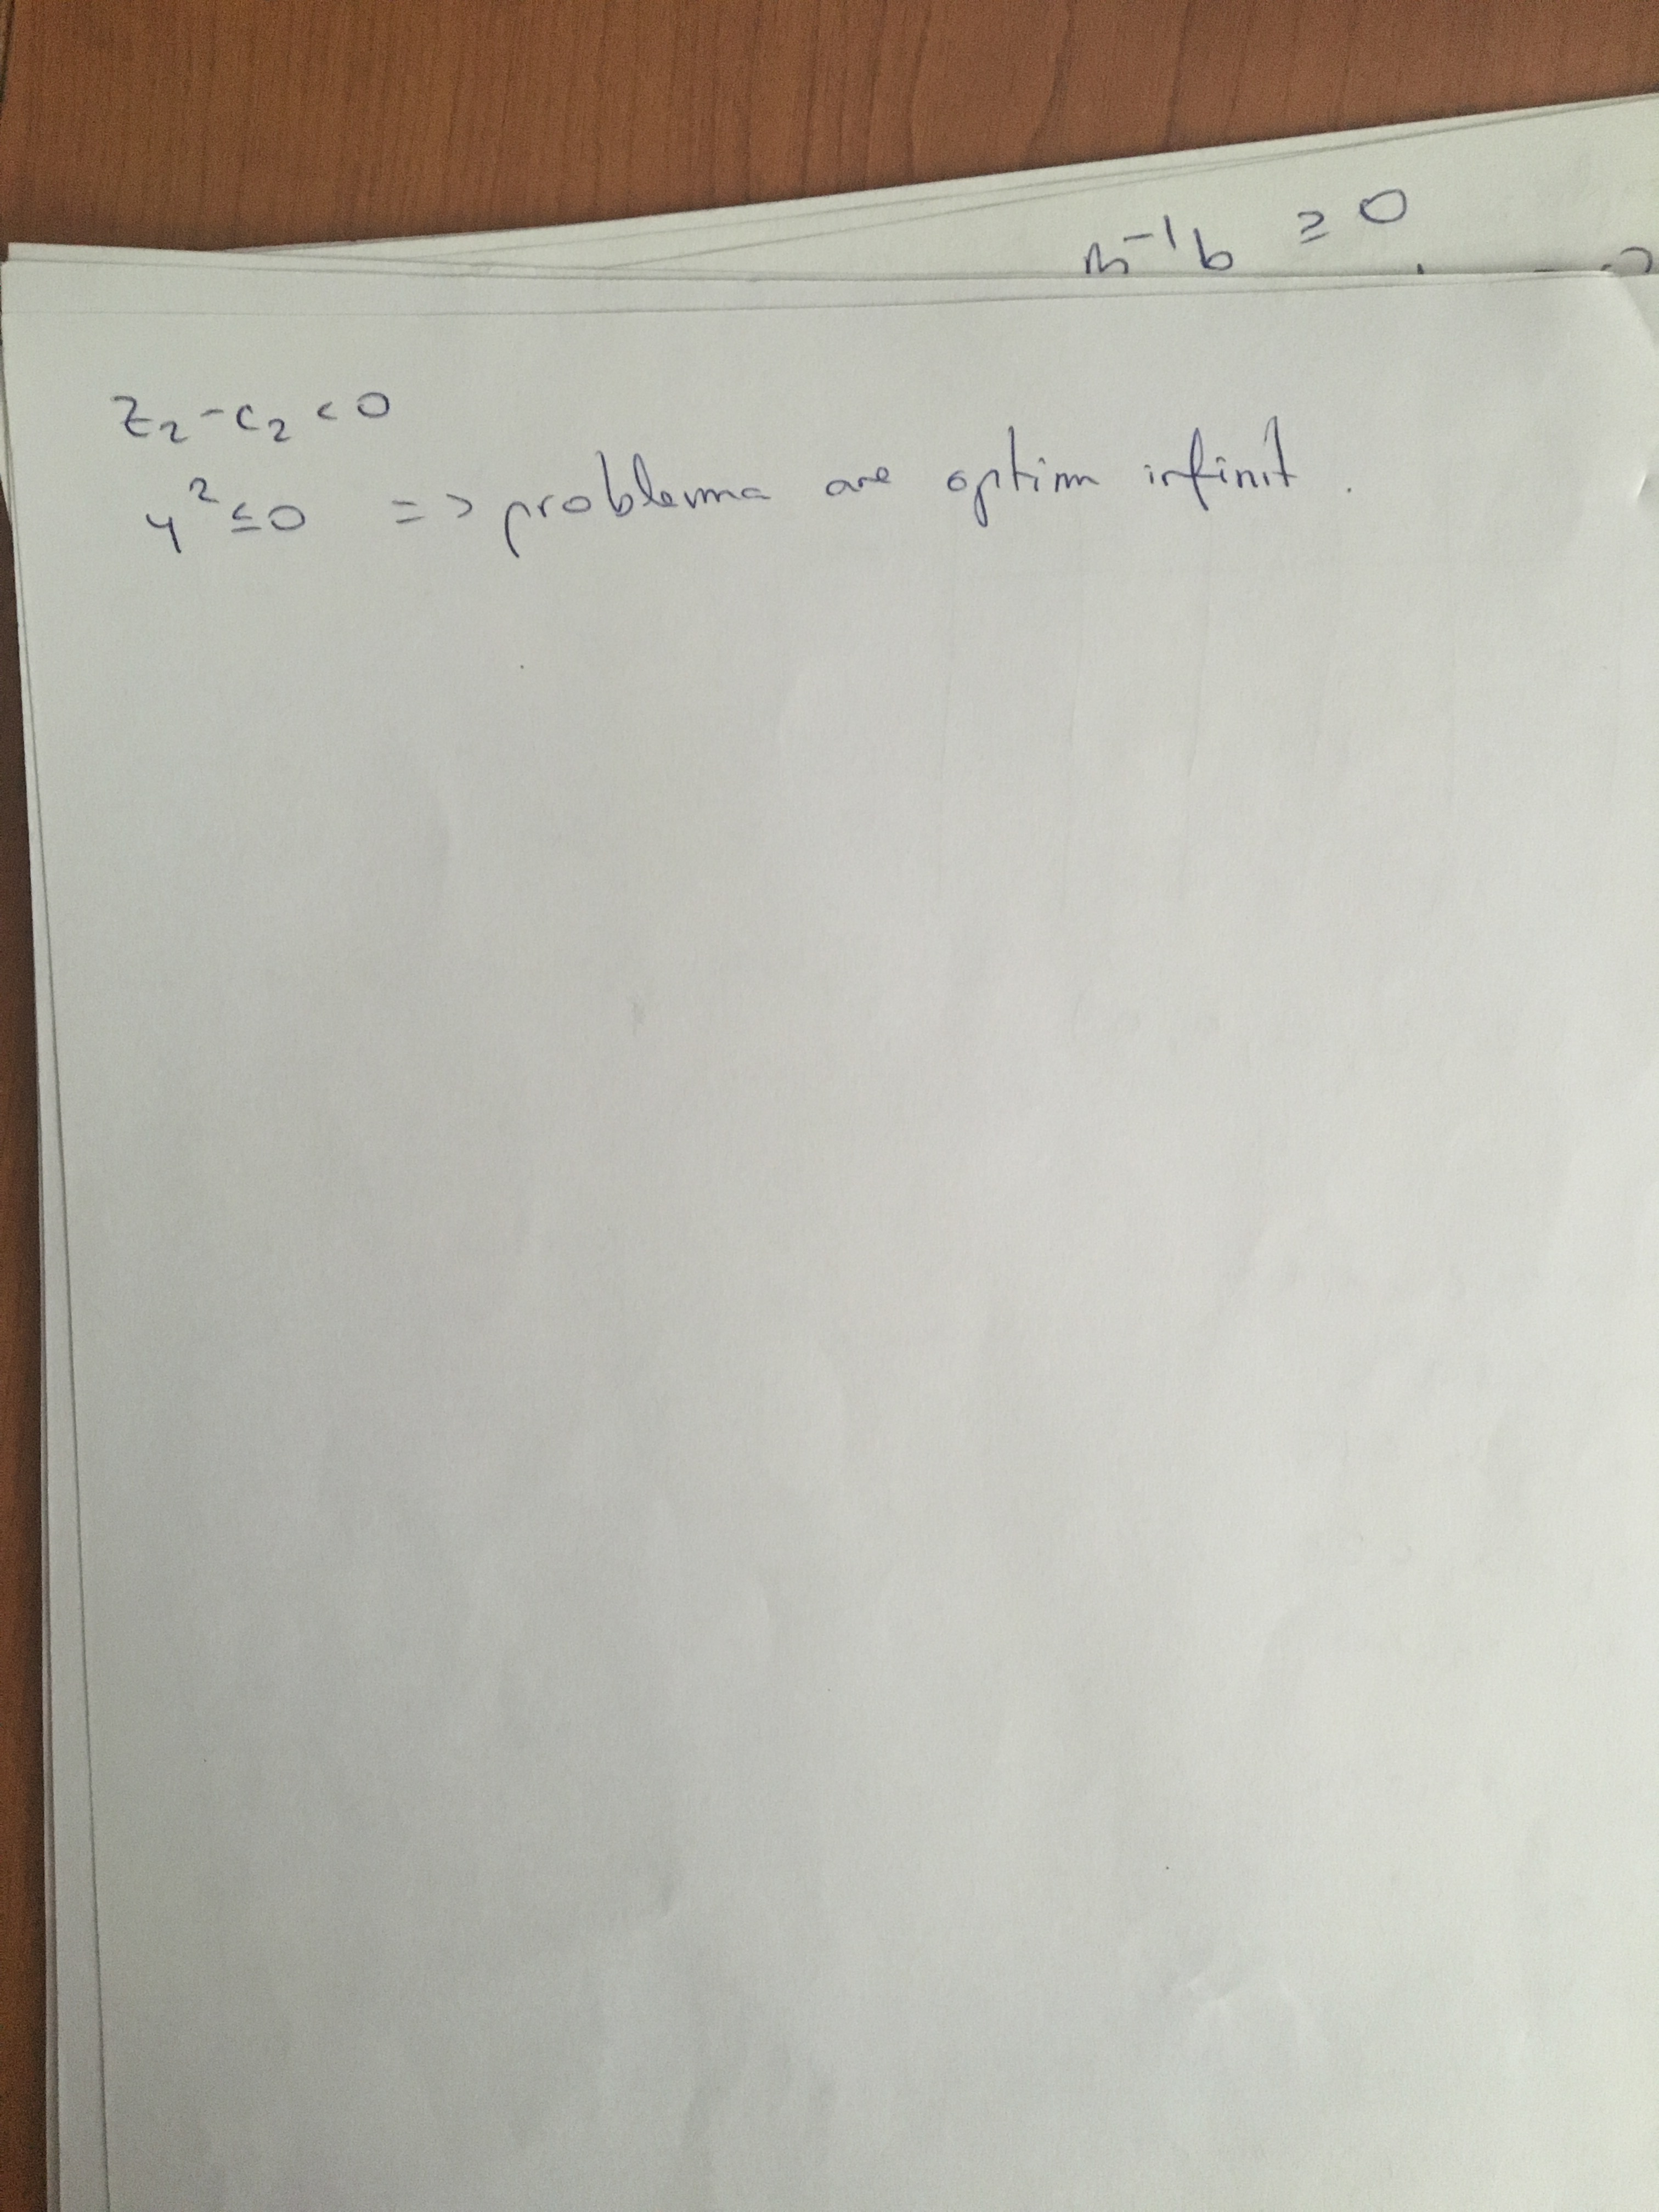 ⁻¹b ≥ 0
z₂ - c₂ < 0
y² ≤ 0 => problema are optim infinit.